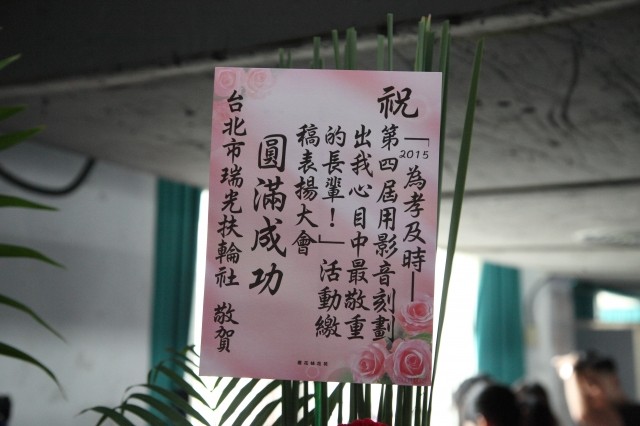 祝「2015為孝及時—
第四屆用影音刻劃
出我心目中最敬重
的長輩！」活動繳
稿表揚大會
圓滿成功
台北市瑞光扶輪社 敬賀